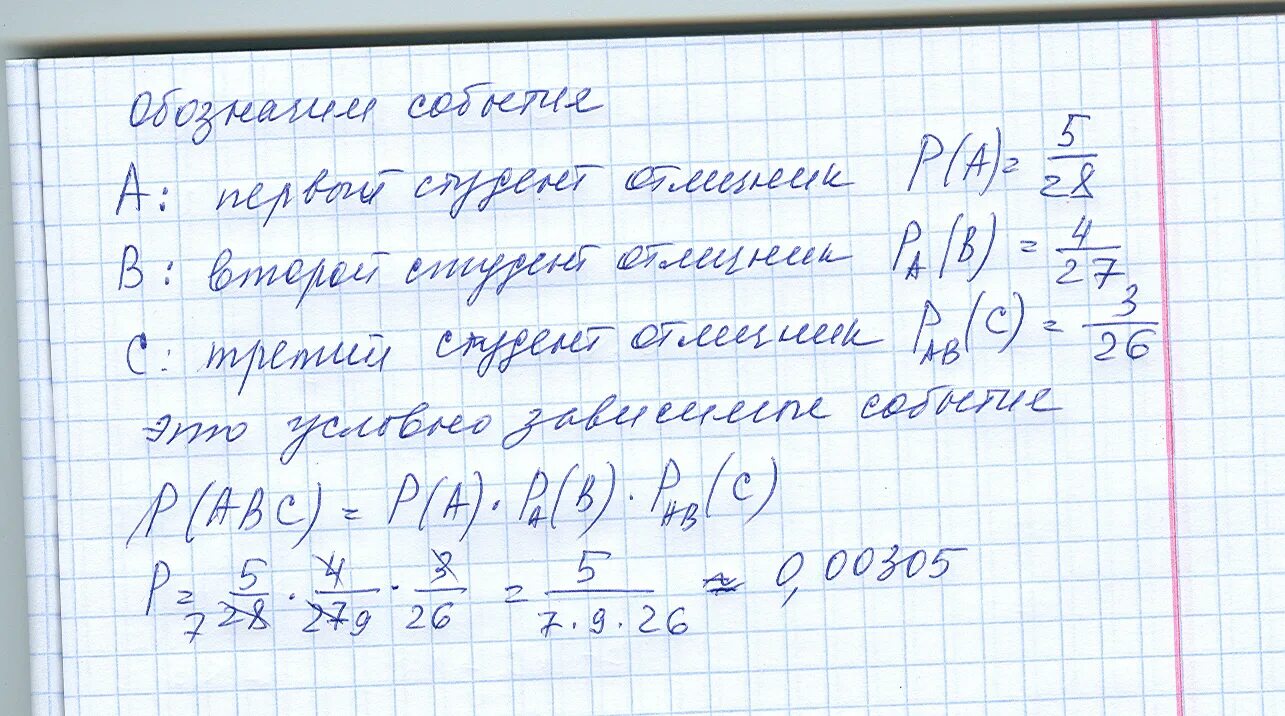 Обозначим события
A: первый студент отличник P(A)= 5/28
B: второй студент отличник P_A(B) = 4/27
C: третий студент отличник P_AB(C) = 3/26
это условно зависимые события
P(ABC) = P(A) · P_A(B) · P_AB(C)
P = 5/28 7 · 4/27 9 · 3/26 = 5/7·9·26 ≈ 0,00305